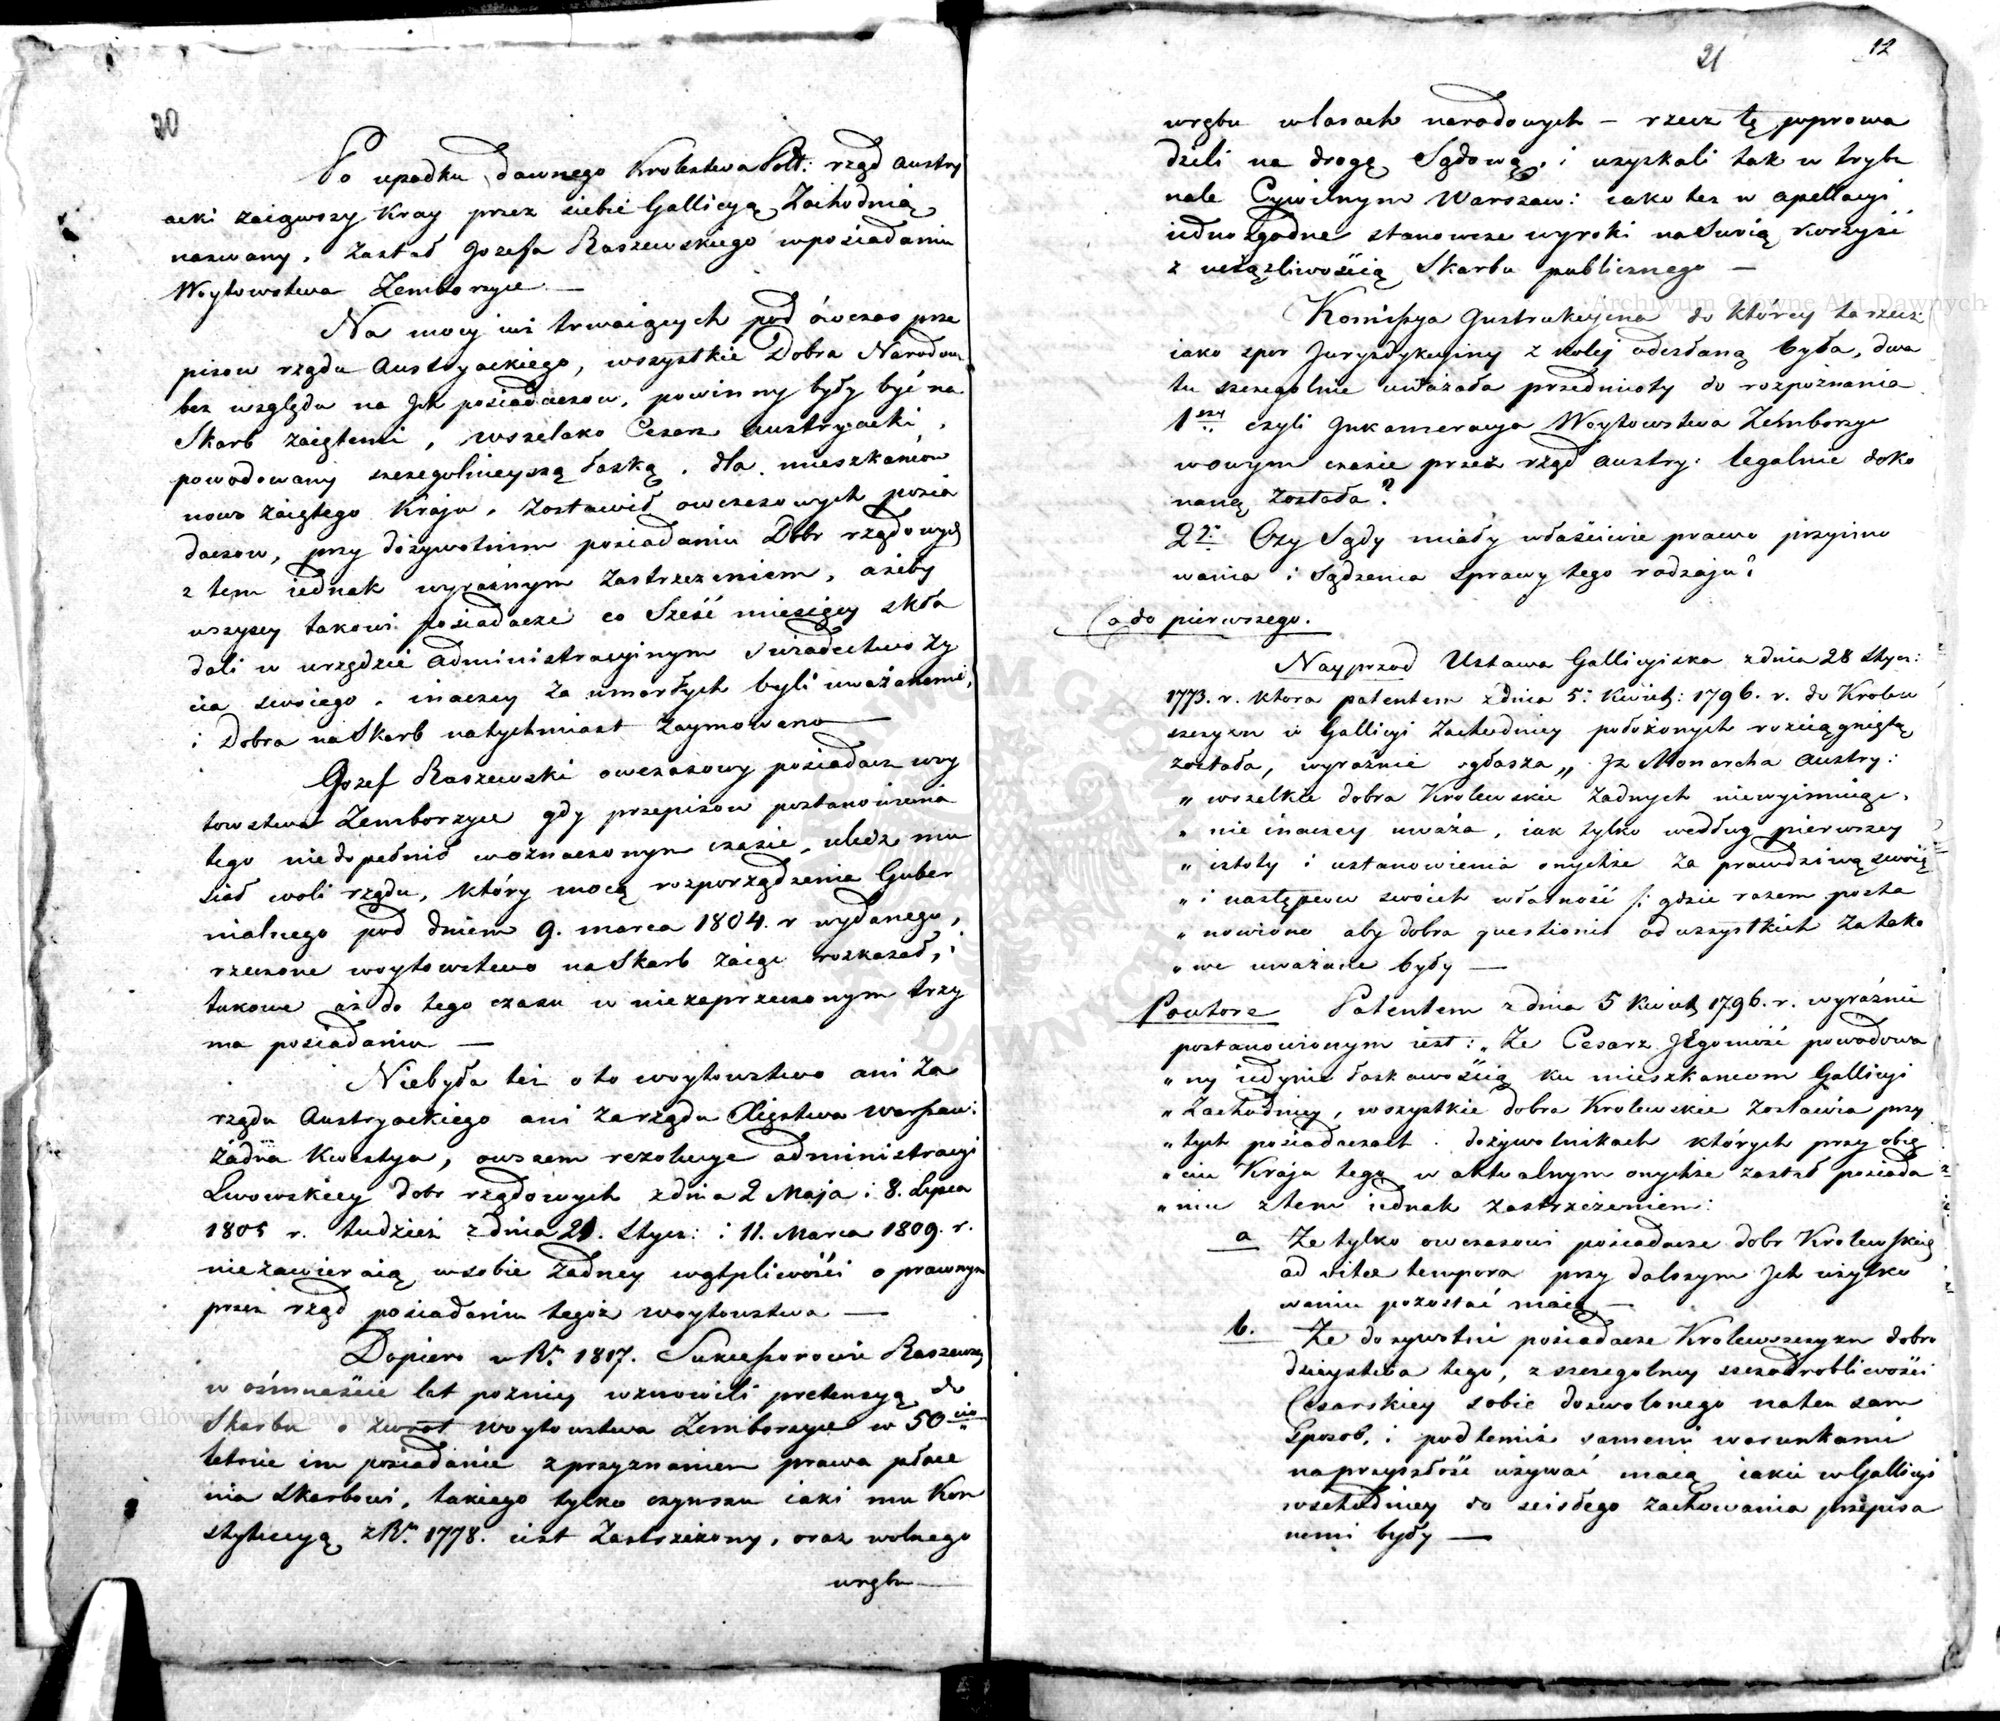 20
Po upadku dawnego Krolestwa Pols: rząd Austry
acki zaiąwszy Kray przez siebie Gallicyą Zachodnią
nazwany, zastał Jozefa Raszewskiego w posiadaniu
Woytowstwa Zemborzyce —
Na mocy iuż trwaiących pod ówczas prze
pisow rządu Austryackiego, wszystkie Dobra Narodow:
bez względu na Jch posiadaczow, powinny były być na
Skarb zaiętemi, wszelako Cesarz Austryacki,
powodowany szczegolnieyszą łaską, dla mieszkańcow
nowo zaiętego Kraju, zostawił owczesowych posia
daczow, przy dożywotnim posiadaniu Dobr rządowych
z tem iednak wyraźnym zastrzezeniem, ażeby
wszyscy takowi posiadacze co sześć miesięcy skła
dali w urzędzie Administracyinym swiadectwo ży
cia swoiego, inaczey za umarłych byli uważanemi,
i Dobra na Skarb natychmiast zaymowano —
Jozef Raszewski owczasowy posiadacz woy
towstwa Zemborzyce gdy przepisow postanowienia
tego niedopełnił w oznaczonym czasie, uledz mu
siał woli rządu, który mocą rozporządzenia Guber
nialnego pod dniem 9. marca 1804. r wydanego,
rzeczone woytowstwo na Skarb zaiąć rozkazał, i
takowe aż do tego czasu w niezaprzeczonym trzy
ma posiadaniu —
Niebyła też o to woytowstwo ani za
rządu Austryackiego ani za rządu Xięstwa Warszaw:
żadna kwestya, owszem rezolucye administracyi
Lwowskiey dobr rządowych z dnia 2 Maja i 8. Lipca
1805 r. tudzież z dnia 21. Stycz: i 11. Marca 1809. r.
niezawieraią w sobie żadney wątpliwości o prawnym
przez rząd posiadaniu tegoż woytowstwa —
Dopiero w Rr. 1817. Sukcessorowie Raszewsky
w ośmnaście lat poźniey wznowili pretensyą do
Skarbu o zwrot woytowstwa Zemborzyce w 50cio
letnie im posiadanie z przyznaniem prawa płace
nia Skarbowi, takiego tylko czynszu iaki mu Kon
stytucyą z Rr. 1778. iest zastrzeżony, oraz wolnego
wrębu —
21
12
wrębu w lasach narodowych — rzecz tę poprowa
dzili na drogę Sądową, i uzyskali tak w trybu
nale Cywilnym Warszaw: iako tez w apellacyi
iednozgodne stanowcze wyroki na swoią korzyść
z uciążliwością Skarbu publicznego —
Komissya Jnstrukcyina do którey ta rzecz
iako spor Jurysdykcyiny z kolej odesłaną była, dwa
tu szczegolnie uważała przedmioty do rozpoznania
1szy czyli Jnkameracya Woytowstwa Zemborzyc
w owym czasie przez rząd Austry: legalnie doko
naną została?
2e: Czy Sądy miały właściwie prawo przyimo
wania i Sądzenia sprawy tego rodzaju?
Co do pierwszego.
Nayprzod Ustawa Gallicyiska z dnia 28 Stycz:
1773. r. ktora patentem z dnia 5. Kwiet: 1796. r. do Krolew
szczyzn w Gallicyi Zachodniey położonych rozciągniętą
została, wyraźnie ogłasza „ Jz Monarcha Austry:
„ wszelkie dobra Krolewskie żadnych niewyimuiąc,
„ nie inaczey uważa, iak tylko według pierwszey
„ istoty i ustanowienia onychże za prawdziwą swoią
„ i następcow swoich własność /: gdzie razem posta
„ nowiono aby dobra questionis od wszystkich za tako
„ we uważane były —
Powtore Patentem z dnia 5 Kwiet: 1796. r. wyraźnie
postanowionym iest: „ Ze Cesarz JEgomość powodowa
„ ny iedynie łaskawością ku mieszkancom Gallicyi
„ Zachodniey, wszystkie dobra Krolewskie zostawia przy
„ tych posiadaczach dożywotnikach których przy obię
„ ciu Kraju tego w aktualnym onychże zastał posiada
„ niu z tem iednak zastrzeżeniem:
a Ze tylko owczasowi posiadacze dobr Krolewskich
ad vitae tempora przy dalszym Jch użytko
waniu pozostać maią —
b. Ze dozywotni posiadacze Krolewszczyzn dobro
dzieystwa tego, z szczegolney szczodrobliwości
Cesarskiey sobie dozwolonego na ten sam
sposob, i pod temiż samemi warunkami
na przyszłość używać maią iakie w Gallicyi
wschodniey do scisłego zachowania przepisa
nemi były —
Archiwum Główne Akt Dawnych
Archiwum Główne Akt Dawnych